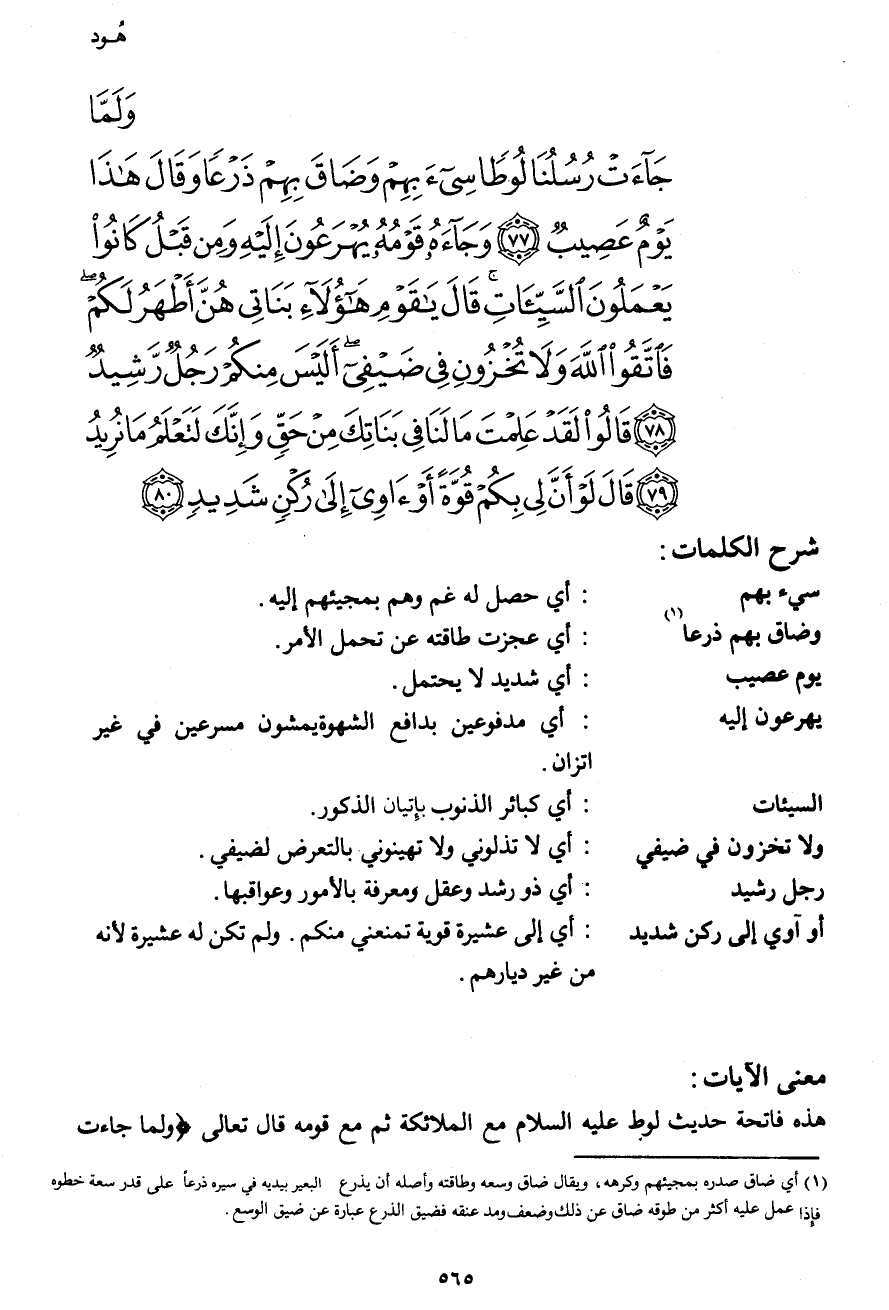 هُـود
وَلَمَّا
جَآءَتْ رُسُلُنَا لُوطًا سِيٓءَ بِهِمْ وَضَاقَ بِهِمْ ذَرْعًا وَقَالَ هَٰذَا
يَوْمٌ عَصِيبٌ ﴿٧٧﴾ وَجَآءَهُۥ قَوْمُهُۥ يُهْرَعُونَ إِلَيْهِ وَمِن قَبْلُ كَانُوا۟
يَعْمَلُونَ ٱلسَّيِّـَٔاتِ ۚ قَالَ يَٰقَوْمِ هَٰٓؤُلَآءِ بَنَاتِى هُنَّ أَطْهَرُ لَكُمْ ۖ
فَٱتَّقُوا۟ ٱللَّهَ وَلَا تُخْزُونِ فِى ضَيْفِىٓ ۖ أَلَيْسَ مِنكُمْ رَجُلٌ رَّشِيدٌ
﴿٧٨﴾ قَالُوا۟ لَقَدْ عَلِمْتَ مَا لَنَا فِى بَنَاتِكَ مِنْ حَقٍّ وَإِنَّكَ لَتَعْلَمُ مَا نُرِيدُ
﴿٧٩﴾ قَالَ لَوْ أَنَّ لِى بِكُمْ قُوَّةً أَوْ ءَاوِىٓ إِلَىٰ رُكْنٍ شَدِيدٍ ﴿٨٠﴾
شرح الكلمات :
سيء بهم : أي حصل له غم وهم بمجيئهم إليه .
وضاق بهم ذرعا (١) : أي عجزت طاقته عن تحمل الأمر .
يوم عصيب : أي شديد لا يحتمل .
يهرعون إليه : أي مدفوعين بدافع الشهوة يمشون مسرعين في غير
اتزان .
السيئات : أي كبائر الذنوب بإتيان الذكور .
ولا تخزون في ضيفي : أي لا تذلوني ولا تهينوني بالتعرض لضيفي .
رجل رشيد : أي ذو رشد وعقل ومعرفة بالأمور وعواقبها .
أو آوي إلى ركن شديد : أي إلى عشيرة قوية تمنعني منكم . ولم تكن له عشيرة لأنه
من غير ديارهم .
معنى الآيات :
هذه فاتحة حديث لوط عليه السلام مع الملائكة ثم مع قومه قال تعالى ﴿ولما جاءت
(١) أي ضاق صدره بمجيئهم وكرهه ، ويقال ضاق وسعه وطاقته وأصله أن يذرع البعير بيديه في سيره ذرعاً على قدر سعة خطوه
فإذا عمل عليه أكثر من طوقه ضاق عن ذلك وضعف ومد عنقه فضيق الذرع عبارة عن ضيق الوسع .
٥٦٥